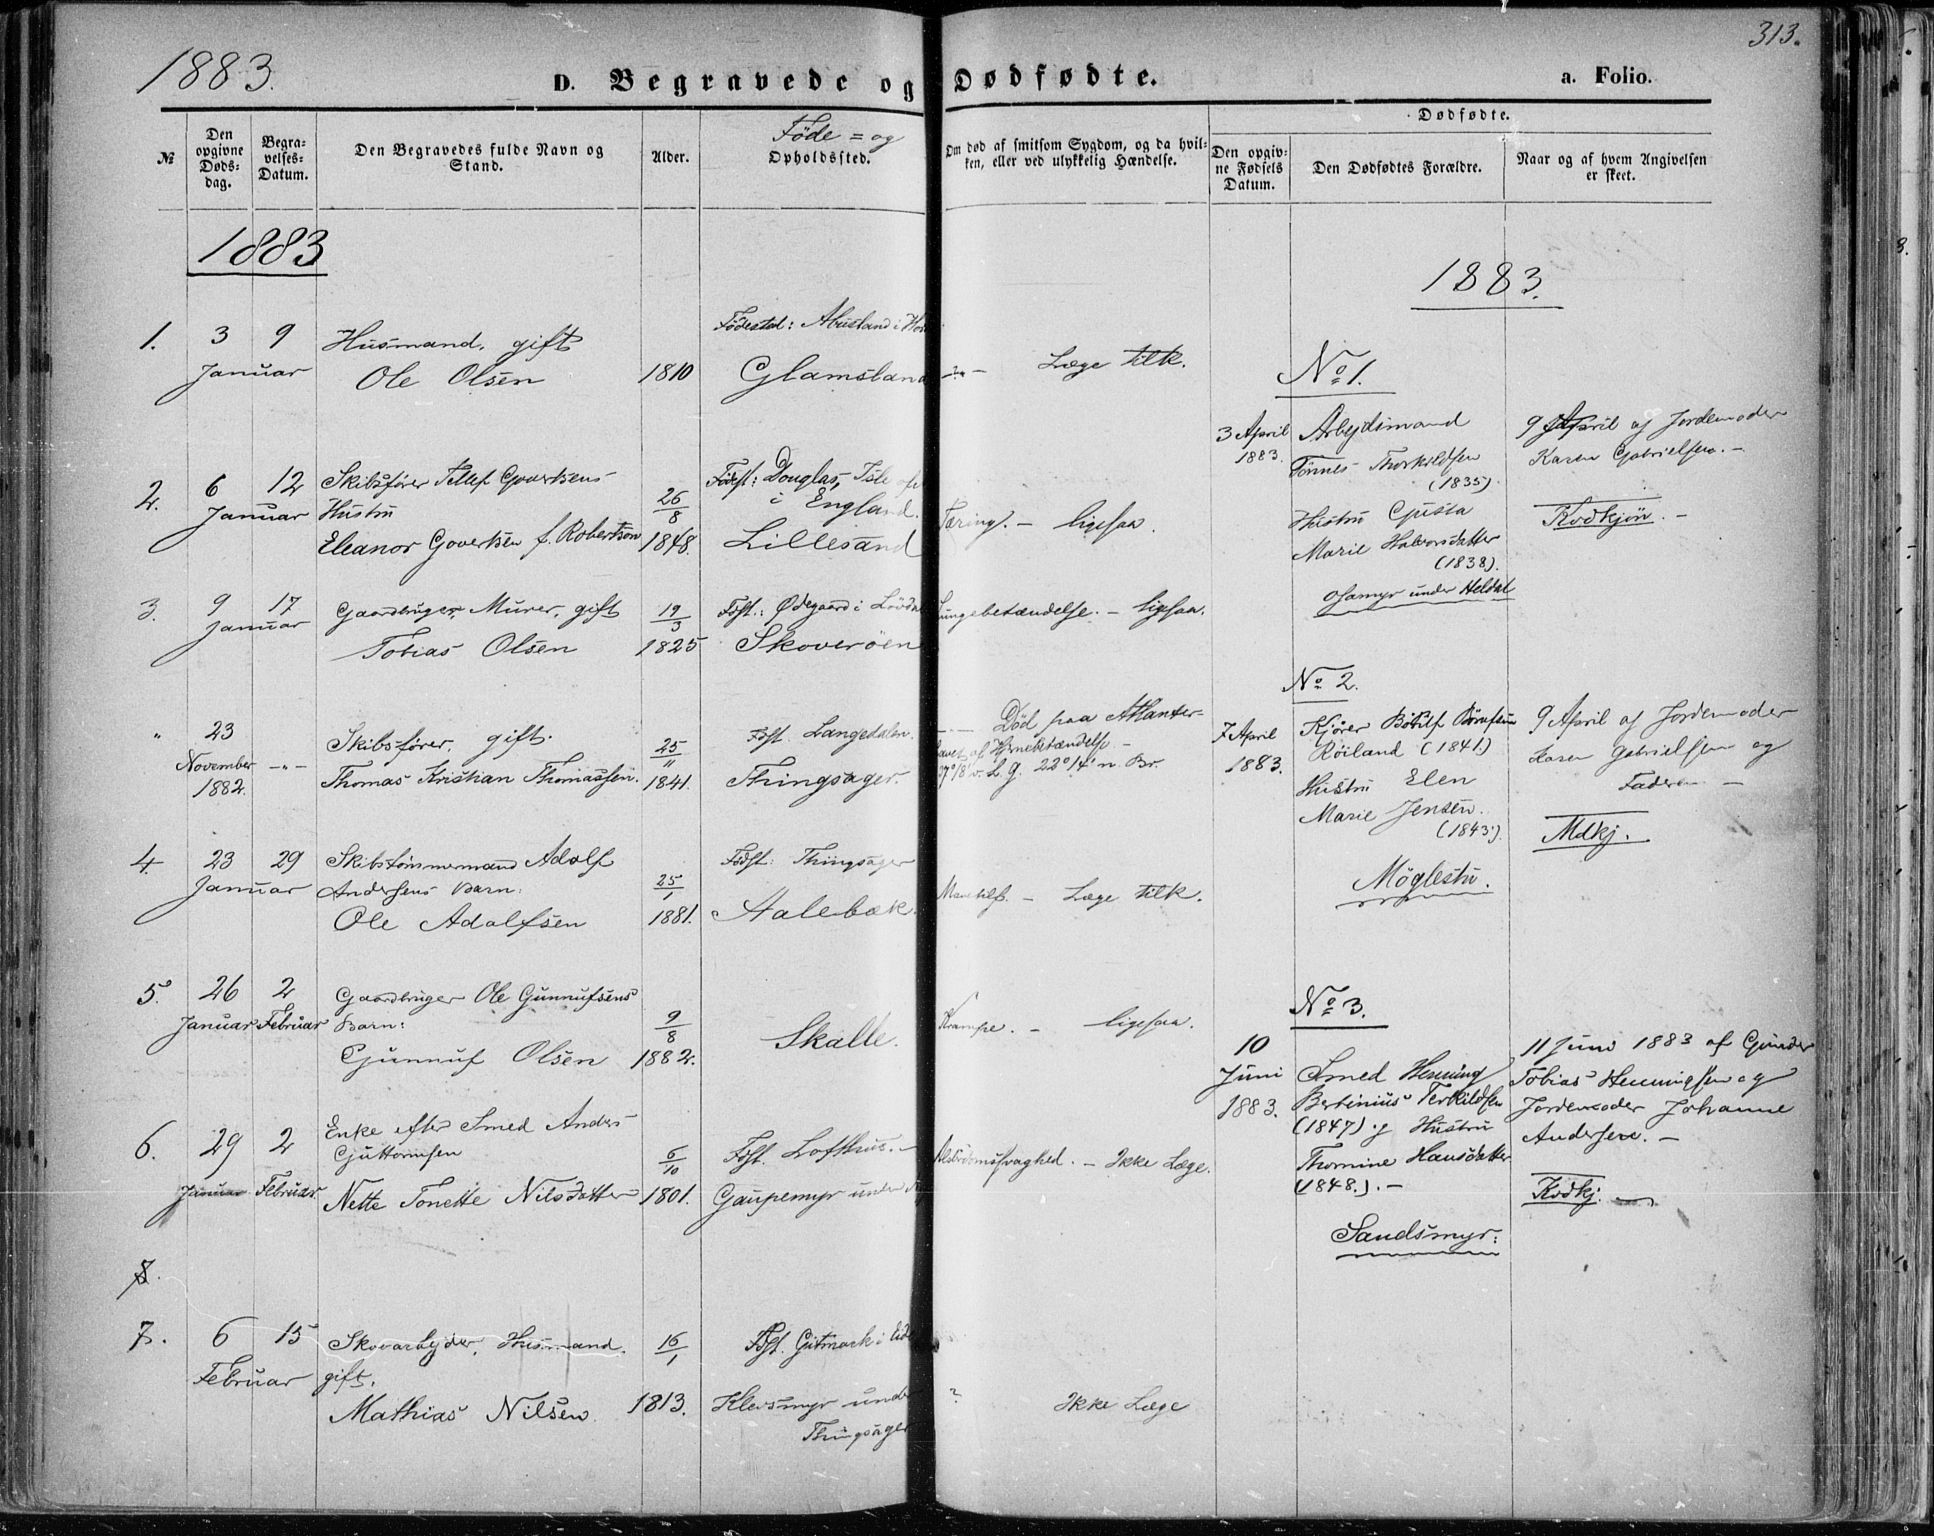 1883.
313.
D. Begravede og Dødfødte.
a. Folio.
№
Den opgivne Døds-dag.
Begra-velses-Datum.
Den Begravedes fulde Navn og Stand.
Alder.
Føde = og
Opholdssted.
Om død af smitsom Sygdom, og da hvil-
ken, eller ved ulykkelig Hændelse.
Dødfødte.
Den opgiv-
ne Fødsels
Datum.
Den Dødfødtes Forældre.
Naar og af hvem Angivelsen
er skeet.
1883
1. 3 9 Januar
Husmand, gift
Ole Olsen
1810
Fødested: Abusland i
Glamsland
Læge tilk.
2. 6 12 Januar
Skibsfører Tellef Govertsens
Hustru
Eleanor Govertsen f. Robertson
26/8 1848.
Fødst: Douglas, Isle of
i England.
Lillesand
Tæring. – ligesaa.
3. 9 17 Januar
Gaardbruger, Murer, gift
Tobias Olsen
19/3 1825
Føst.: Ødegaard i
Skoverøen
Lungebetændelse. – ligesaa.
" 23 November 1882. – " –
Skibsfører, gift.
Thomas Kristian Thomassen.
25/11 1841.
Føst. Langedalen.
Thingsager.
Død paa Atlanter-
havet af Hjernebetændelse –
v. L. g. 22° 14' n. Br.
4. 23 29 Januar
Skibstømmermand Adolf
Andersens Barn:
Ole Adolfsen
25/1 1881.
Fødst: Thingsager
Aalebæk.
Læge tilk.
5. 26 Januar 2 Februar
Gaardbruger Ole Gunnufsens
Barn:
Gunnuf Olsen
9/8 1882.
Skalle.
Krampe. – ligesaa.
6. 29 Januar 2 Februar
Enke efter Smed Anders
Guttormsen
Nette Tonette Nilsdatter
6/10 1801.
Føst. Lofthus. –
Gaupemyr under
Alderdomssvaghed. – Ikke Læge.
8.
7. 6 15 Februar
Skovarbejder, Husmand.
gift.
Mathias Nilsen.
16/1 1813.
Føst. Gitmark i Eide
Klevsmyr under
Thingsager
? Ikke Læge
1883.
No 1.
3 April
1883.
Arbejdsmand
Tønnes Thorkildsen
(1835).
Hustru Gusta
Marie Halvorsdatter
(1838).
Osamyr under Heldal
9 April af Jordemoder
Karen Gabrielsen. –
Kvdkjøn. –
No 2.
7 April
1883.
Kjører
Røiland (1841.)
Hustru Elen
Marie Jensen.
(1843).
Møglestu.
9 April af Jordemoder
Karen Gabrielsen og
Faderen –
Mdkj.
No 3.
10
Juni
1883.
Smed Henning
Bertinius Terkildsen
(1847) og Hustru
Thomine Hansdatter
(1848.). –
Sandsmyr.
11 Juni 1883 af Gunder
Tobias Henningsen og
Jordemoder Johanne
Andersen. –
Kvdkj.